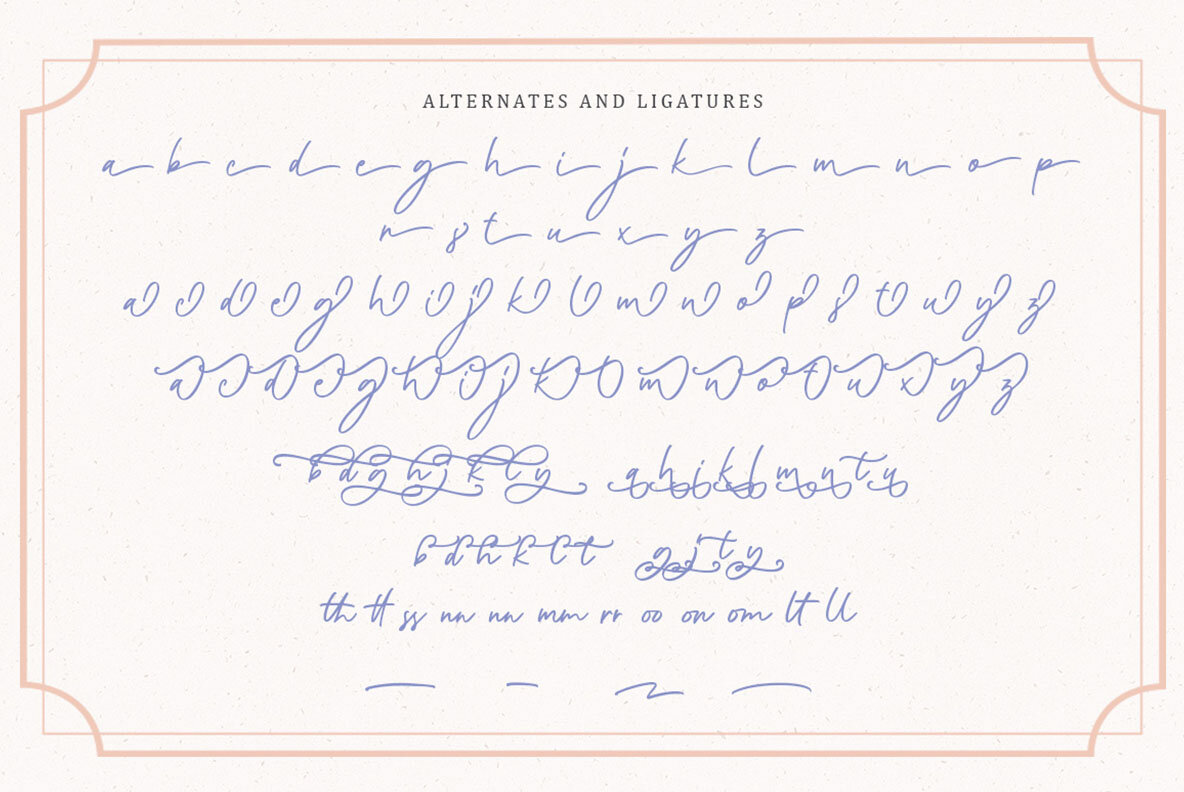 ALTERNATES AND LIGATURES
a b c d e g h i j k l m n o p
r s t u x y z
a c d e g h i j k l m n o p s t u y z
a c d e g h i j k l m n o t u x y z
b d g h j k l y a h i k l m n t u
b d h k l t g j t y
th tt ss nn nn mm rr oo on om lt ll